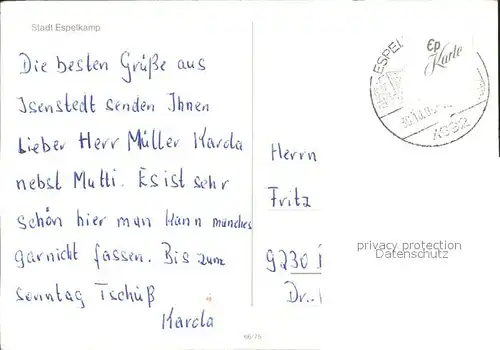 Stadt Espelkamp
Die besten Grüße aus
Isenstedt senden Ihnen
Lieber Herr Müller Karola
nebst Mutti. Es ist sehr
schön hier man kann manches
garnicht fassen. Bis zum
sonntag Tschüß
Karola
Herrn
Fritz
9230
Dr.-
ESPEL
Ep
Karte
privacy protection
Datenschutz
66/76